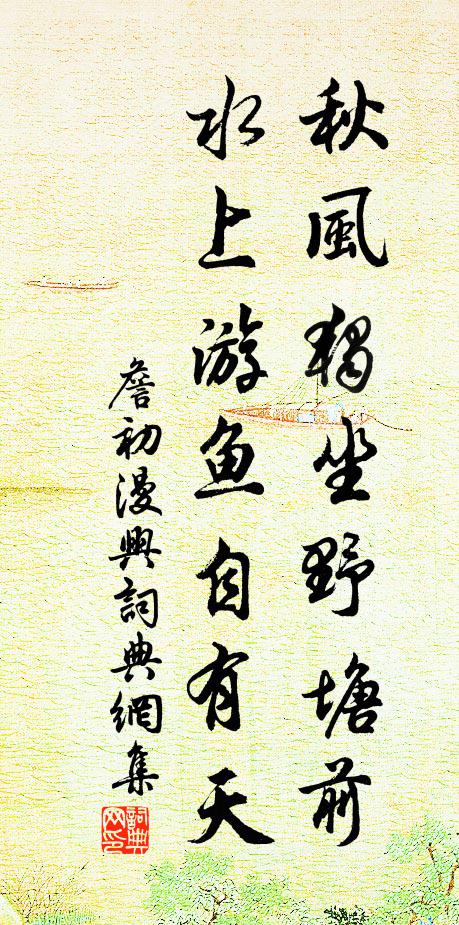 秋風獨坐野塘前
水上游魚自有天
詹初漫興詞典網集
詞典
网印